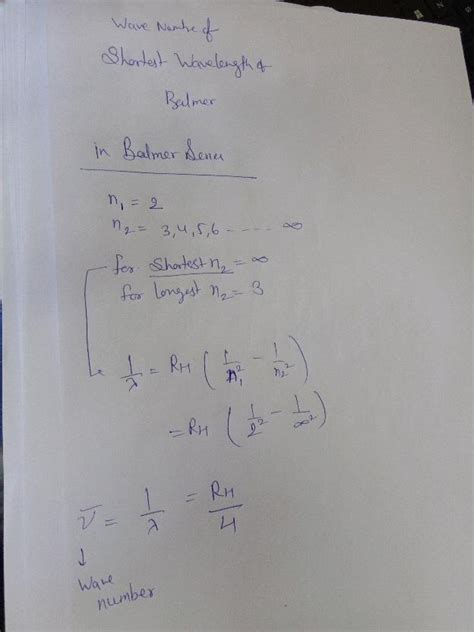 Wave Number of
Shortest Wavelength of
Balmer
in Balmer Series
n₁ = 2
n₂ = 3,4,5,6 - - - - - ∞
for Shortest n₂ = ∞
for longest n₂ = 3
1/λ = RH ( 1/n₁² - 1/n₂² )
= RH ( 1/2² - 1/∞² )
ν̅ = 1/λ = RH/4
↓
Wave
number